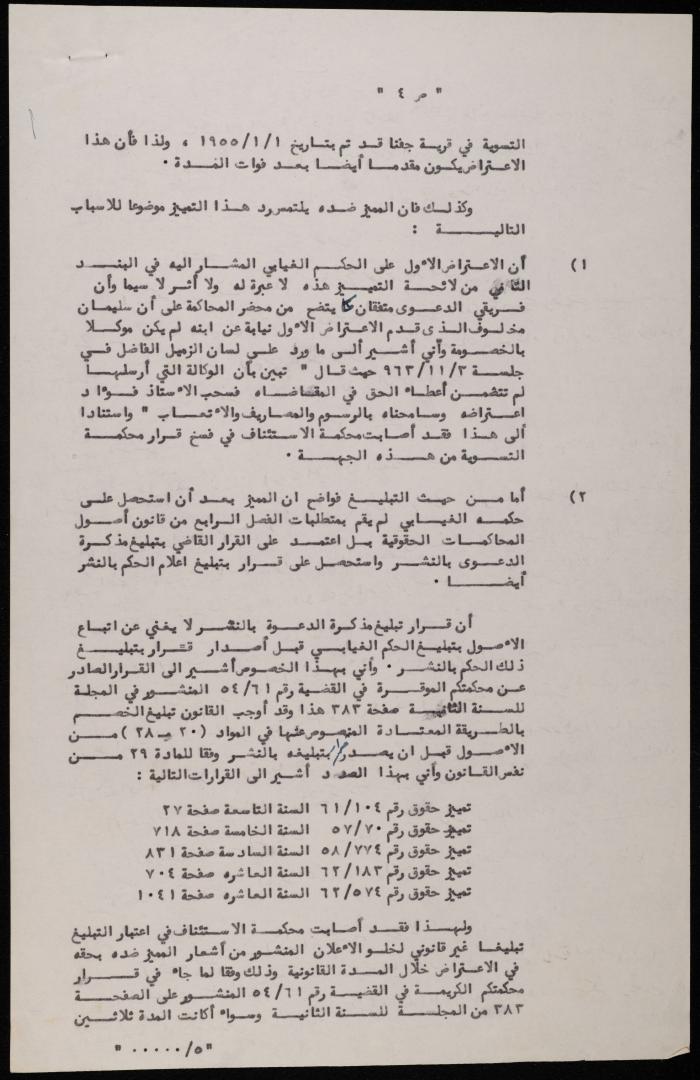 " ص ٤ "
التسوية في قرية جفنا قد تم بتاريخ ١/١/١٩٥٥ ، ولذا فأن هذا
الاعتراض يكون مقدما أيضا بعد فوات المدة .
وكذلك فان المميز ضده يلتمس رد هذا التمييز موضوعا للاسباب
التالية :
١) أن الاعتراض الاول على الحكم الغيابي المشار اليه في البند
الثاني من لائحة التمييز هذه لا عبرة له ولا أثر لا سيما وأن
فريقي الدعوى متفقان كما يتضح من محضر المحاكمة على أن سليمان
مخلوف الذى قدم الاعتراض الاول نيابة عن ابنه لم يكن موكلا
بالخصومة وأني أشير ألى ما ورد على لسان الزميل الفاضل في
جلسة ٩٦٣/١١/٣ حيث قال " تبين بأن الوكالة التي أرسلها
لم تتضمن أعطاء الحق في المقاضاه فسحب الاستاذ فواد
اعتراضه وسامحناه بالرسوم والمصاريف والاتعاب " واستنادا
ألى هذا فقد أصابت محكمة الاستئناف في فسخ قرار محكمة
التسوية من هذه الجهة .
٢) أما من حيث التبليغ فواضح ان المميز بعد أن استحصل على
حكمه الغيابي لم يقم بمتطلبات الفصل الرابع من قانون أصول
المحاكمات الحقوقية بل اعتمد على القرار القاضي بتبليغ مذكرة
الدعوى بالنشر واستحصل على قرار بتبليغ اعلام الحكم بالنشر
أيضا .
أن قرار تبليغ مذكرة الدعوة بالنشر لا يغني عن اتباع
الاصول بتبليغ الحكم الغيابي قبل أصدار قرار بتبليغ
ذلك الحكم بالنشر . وأني بهذا الخصوص أشير الى القرار الصادر
عن محكمتكم الموقرة في القضية رقم ٥٤/٦١ المنشور في المجلة
للسنة الثانية صفحة ٣٨٣ هذا وقد أوجب القانون تبليغ الخصم
بالطريقة المعتادة المنصوص عنها في المواد (٢٠ - ٢٨) من
الاصول قبل ان يصدر قرار بتبليغه بالنشر وفقا للمادة ٢٩ من
نفس القانون وأني بهذا الصدد أشير الى القرارات التالية :
تمييز حقوق رقم ٦١/١٠٤ السنة التاسعة صفحة ٢٧
تمييز حقوق رقم ٥٧/٧٠ السنة الخامسة صفحة ٧١٨
تمييز حقوق رقم ٥٨/٧٧٤ السنة السادسة صفحة ٨٣١
تمييز حقوق رقم ٦٢/١٨٣ السنة العاشره صفحة ٧٠٤
تمييز حقوق رقم ٦٢/٥٧٤ السنة العاشره صفحة ١٠٤١
ولهذا فقد أصابت محكمة الاستئناف في اعتبار التبليغ
تبليغا غير قانوني لخلو الاعلان المنشور من أشعار المميز ضده بحقه
في الاعتراض خلال المدة القانونية وذلك وفقا لما جاء في قرار
محكمتكم الكريمة في القضية رقم ٥٤/٦١ المنشور على الصفحة
٣٨٣ من المجلة للسنة الثانية وسواء أكانت المدة ثلاثين
" ٥/..... "